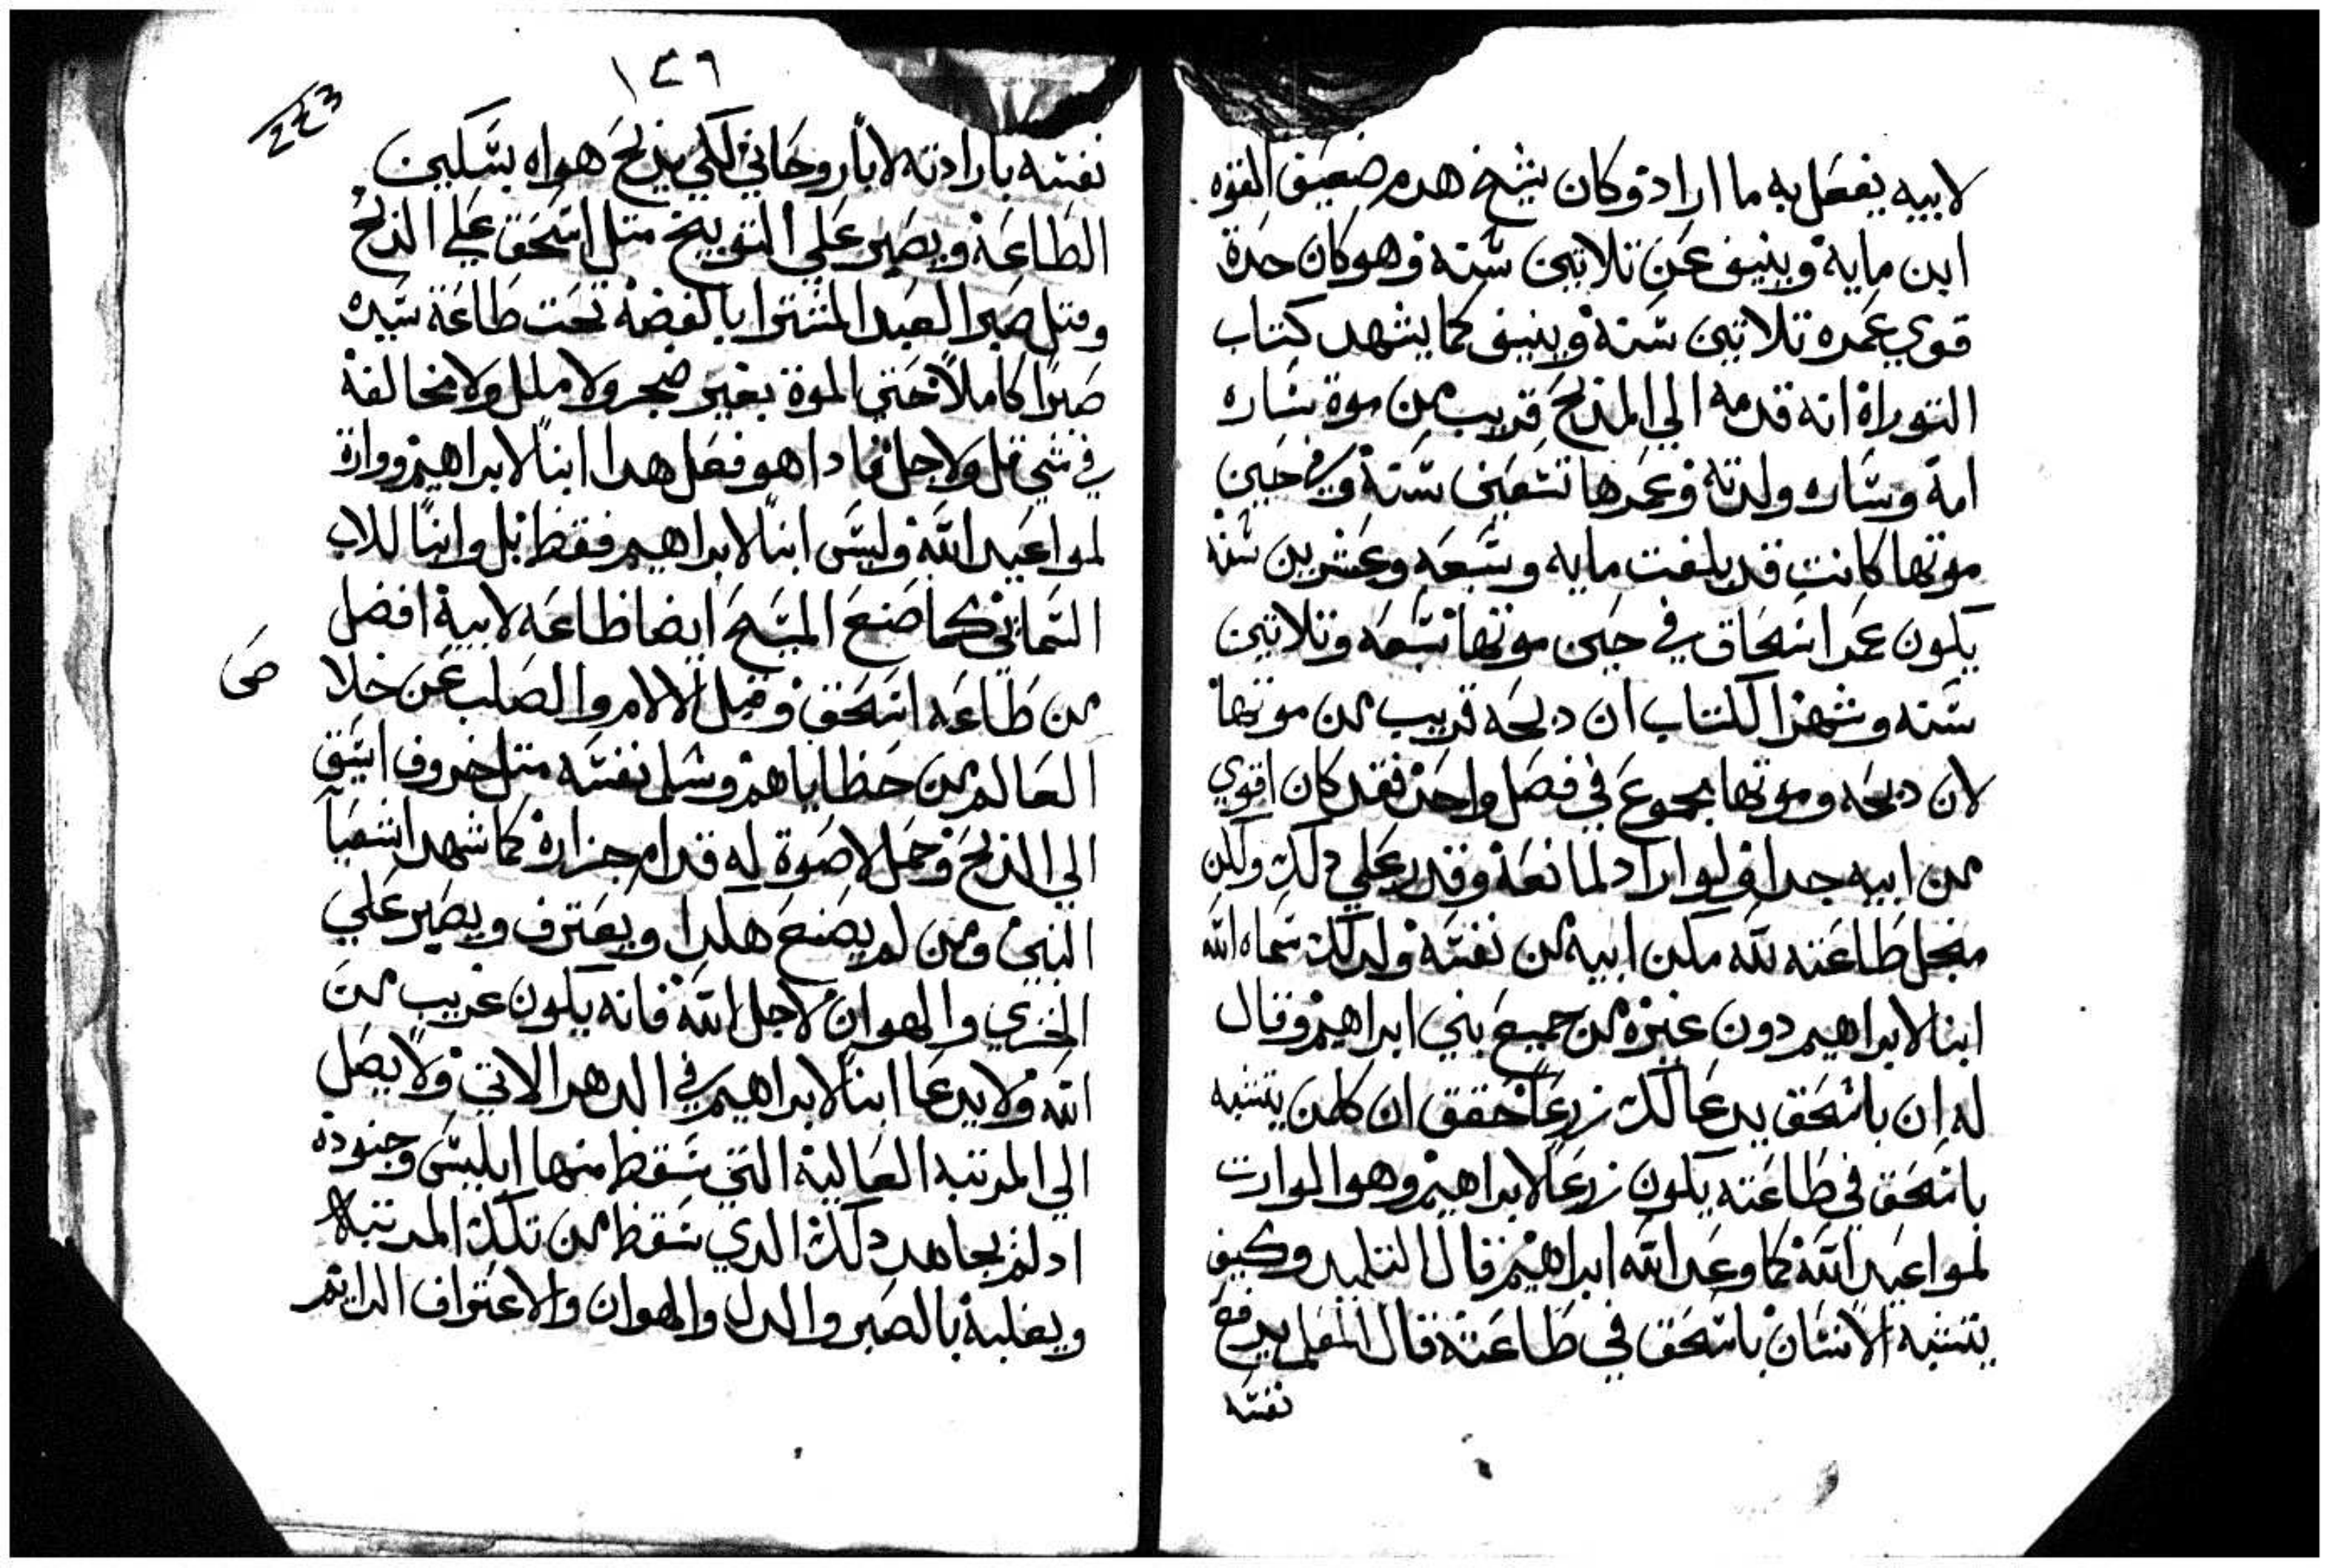 لابيه يفعل به ما اراد وكان شيخ هدم ضعيف القوه
ابن مايه وينيف عن تلاتين سنه وهو كان حدة
قوي عمره تلاتين سنه وينيف كما يشهد كتاب
التوراة انه قدمه الي المذبح قريب من موة ساره
امه وساره ولدته وعمرها تسعين سنة وفي حين
موتها كانت قد بلغت مايه وسبعه وعشرين سنه
يكون عمر اسحاق في حين موتها سبعه وتلاتين
سنه وشهد الكتاب ان دبحه قريب من موتها
لان دبحه وموتها مجموع في فصل واحد فقد كان اقوي
من ابيه جدا ولو اراد لمانعه وقدر علي دلك ولكن
منجل طاعته لله مكن ابيه من نفسه ولدلك سماه الله
ابنا لابراهيم دون غيره من جميع بني ابراهيم وقال
له ان باسحق يدعا لك زرعا حقق ان كلمن يتشبه
باسحق في طاعته يكون زرعا لابراهيم وهو الوارت
لمواعيد الله كما وعد الله ابراهيم قال التلميد وكيف
يتشبه الانسان باسحق في طاعته قال المعلم يدفع
نفسه
١٤٦
223
نفسه بارادته لابا روحاني لكي يدبح هواه بسكين
الطاعة ويصبر علي التوبيخ متل اسحق علي الدبح
ومتل صبر العبد المشترا بالفضة تحت طاعة سيده
صبرا كاملا حتي الموة بغير ضجر ولا ملل ولا مخالفة
في شي قل ولاجل مادا هو فعل هدا ابنا لابراهيم ووارة
لمواعيد الله وليس ابنا لابراهيم فقط بل وابنا للاب
السماني كما صنع المسيح ايضا طاعه لابيه افضل
من طاعه اسحق وقبل الالام والصلب عن خلا
ص
العالم من خطاياهم وسلم نفسه متل خروف اسيق
الي الدبح وحمل لا صوة له قدام جزاره كما شهد اشعيا
النبي ومن لم يصنع هكدا ويعترف ويصبر علي
الخزي والهوان لاجل الله فانه يكون غريب من
الله ولا يدعا ابنا لابراهيم في الدهر الاتي ولا يصل
الي المرتبه العاليه التي سقط منها ابليس وجنوده
اد لم يجاهد دلك الدي سقط من تلك المرتبه
ويغلبه بالصبر والدل والهوان والاعتراف الدايم